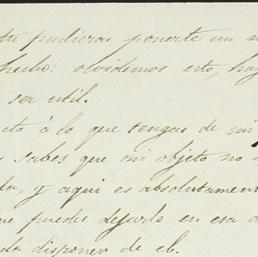 tu pudieras ponerte un
hecho: olvidemos esto, hag
ser util.
to á lo que tengas de mi
s sabes que mi objeto no
da, y aqui es absolutamen
ue puedes dejarlo en esa
da disponer de el.